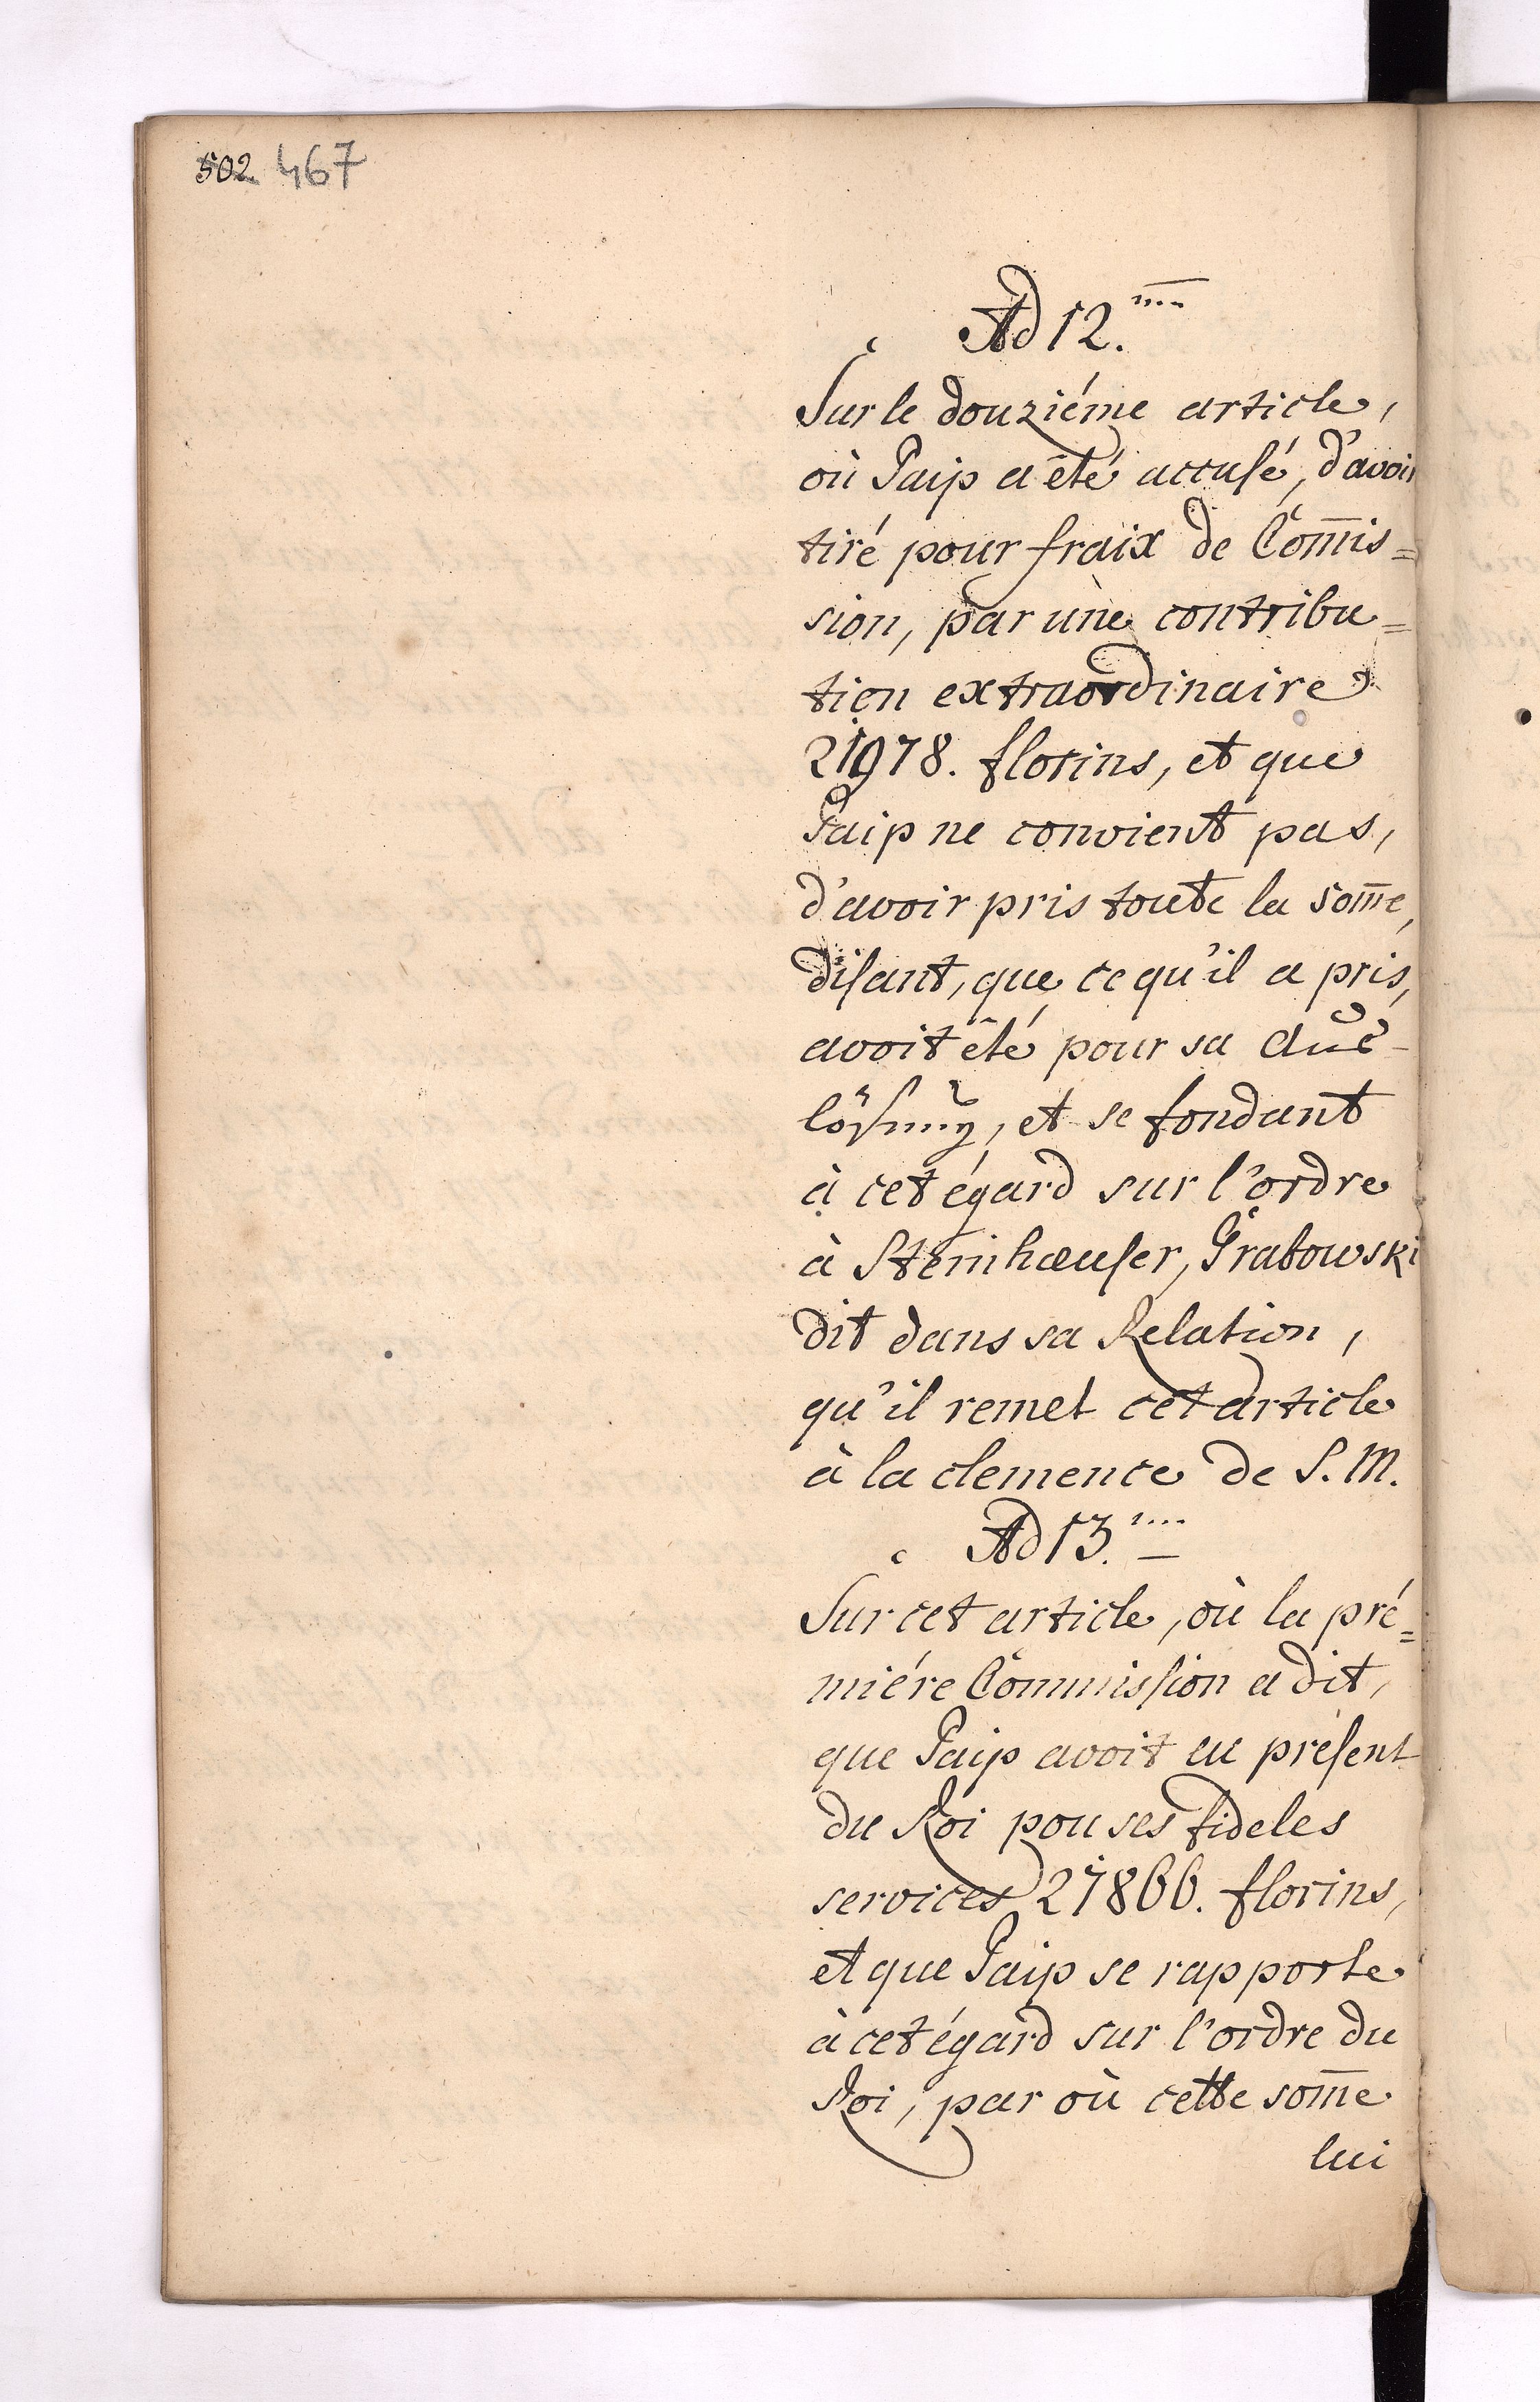 502 467
Ad 12.
Sur le douziéme article,
où Paip a êté accusé, d'avoir
tiré pour fraix de Com̄is=
sion, par une contribu=
tion extraordinaire
21978. florins, et que
Paip ne convient pas,
d'avoir pris toute la som̄e,
disant, que ce qu'il a pris,
avoit êté pour sa Aus-
lösung, et se fondant
à cet égard sur l'ordre
à Steinhæuser, Grabowski
dit dans sa Relation,
qu'il remet cet article
à la clemence de S. M.
Ad 13.
Sur cet article, où la pré=
miére Commission a dit,
que Paip avoit eu présent
du Roi pou ses fideles
services 27866. florins,
et que Paip se rapporte
à cet égard sur l'ordre du
Roi, par où cette som̄e
lui